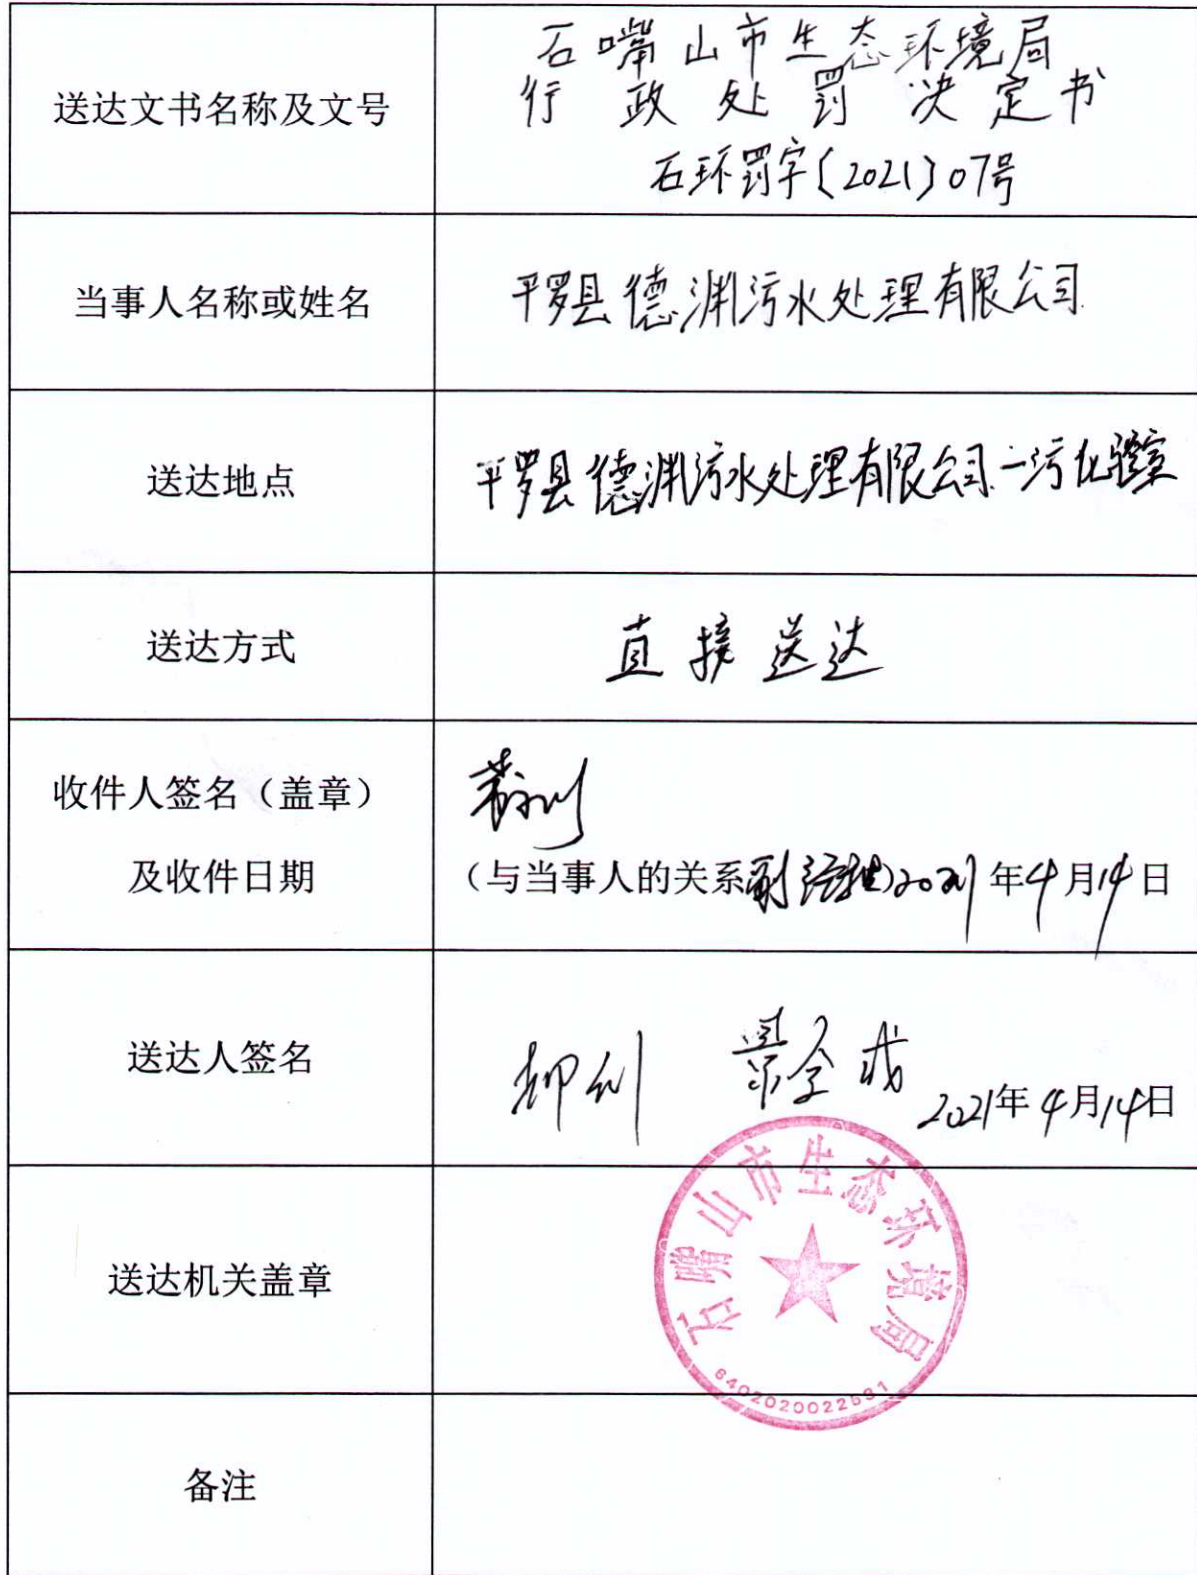 送达文书名称及文号
石嘴山市生态环境局
行政处罚决定书
石环罚字〔2021〕07号
当事人名称或姓名
平罗县德渊污水处理有限公司
送达地点
平罗县德渊污水处理有限公司一污化验室
送达方式
直接送达
收件人签名（盖章）
及收件日期
（与当事人的关系副经理）2021年4月14日
送达人签名
2021年4月14日
送达机关盖章
石嘴山市生态环境局
备注